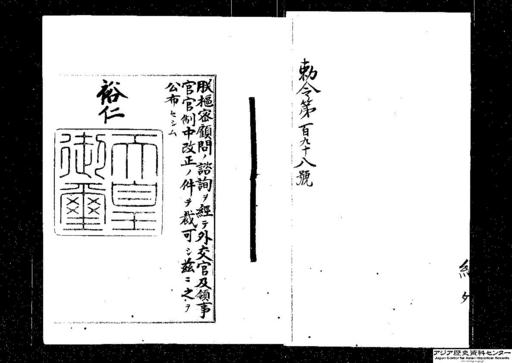 勅令第百九十八號
朕樞密顧問ノ諮詢ヲ經テ外交官及領事
官官制中改正ノ件ヲ裁可シ茲ニ之ヲ
公布セシム
裕仁
天皇
御璽
アジア歴史資料センター
Japan Center for Asian Historical Records